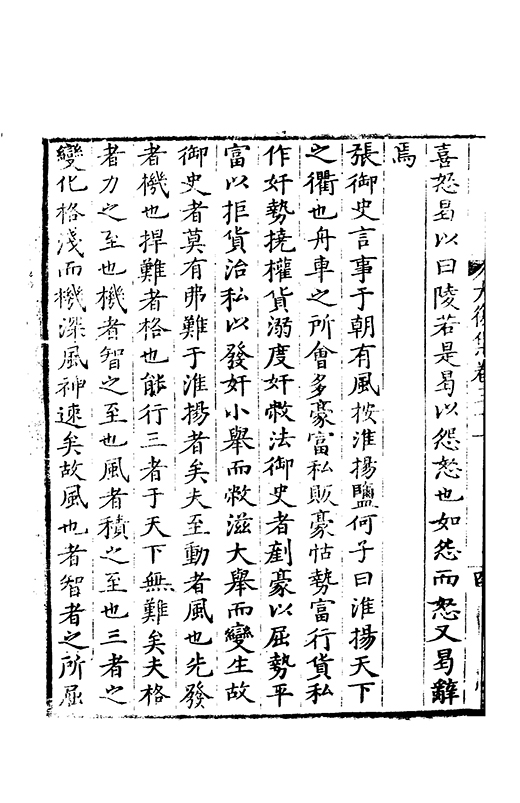 喜怒曷以曰陵若是曷以怨怒也如怨而怒又曷辭
焉
張御史言事于朝有風按淮揚鹽何子曰淮揚天下
之衢也舟車之所會多豪富私販豪怙勢富行貨私
作奸勢撓權貨溺度奸敝法御史者剷豪以屈勢平
富以拒貨治私以發奸小舉而敝滋大舉而變生故
御史者莫有弗難于淮揚者矣夫至動者風也先發
者機也捍難者格也能行三者于天下無難矣夫格
者力之至也機者智之至也風者積之至也三者之
變化格淺而機深風神速矣故風也者智者之所屈